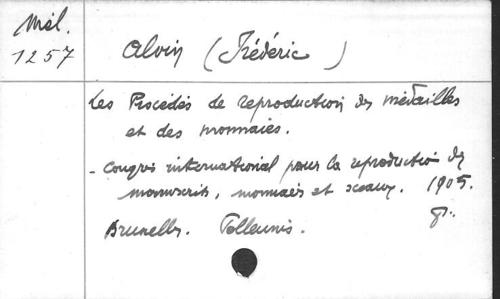 Mél.
1257
Alvin (Frédéric)
Les Procédés de reproduction des médailles
et des monnaies.
- Congrès international pour la reproduction des
manuscrits, monnaies et sceaux. 1905.
Bruxelles. Polleunis.